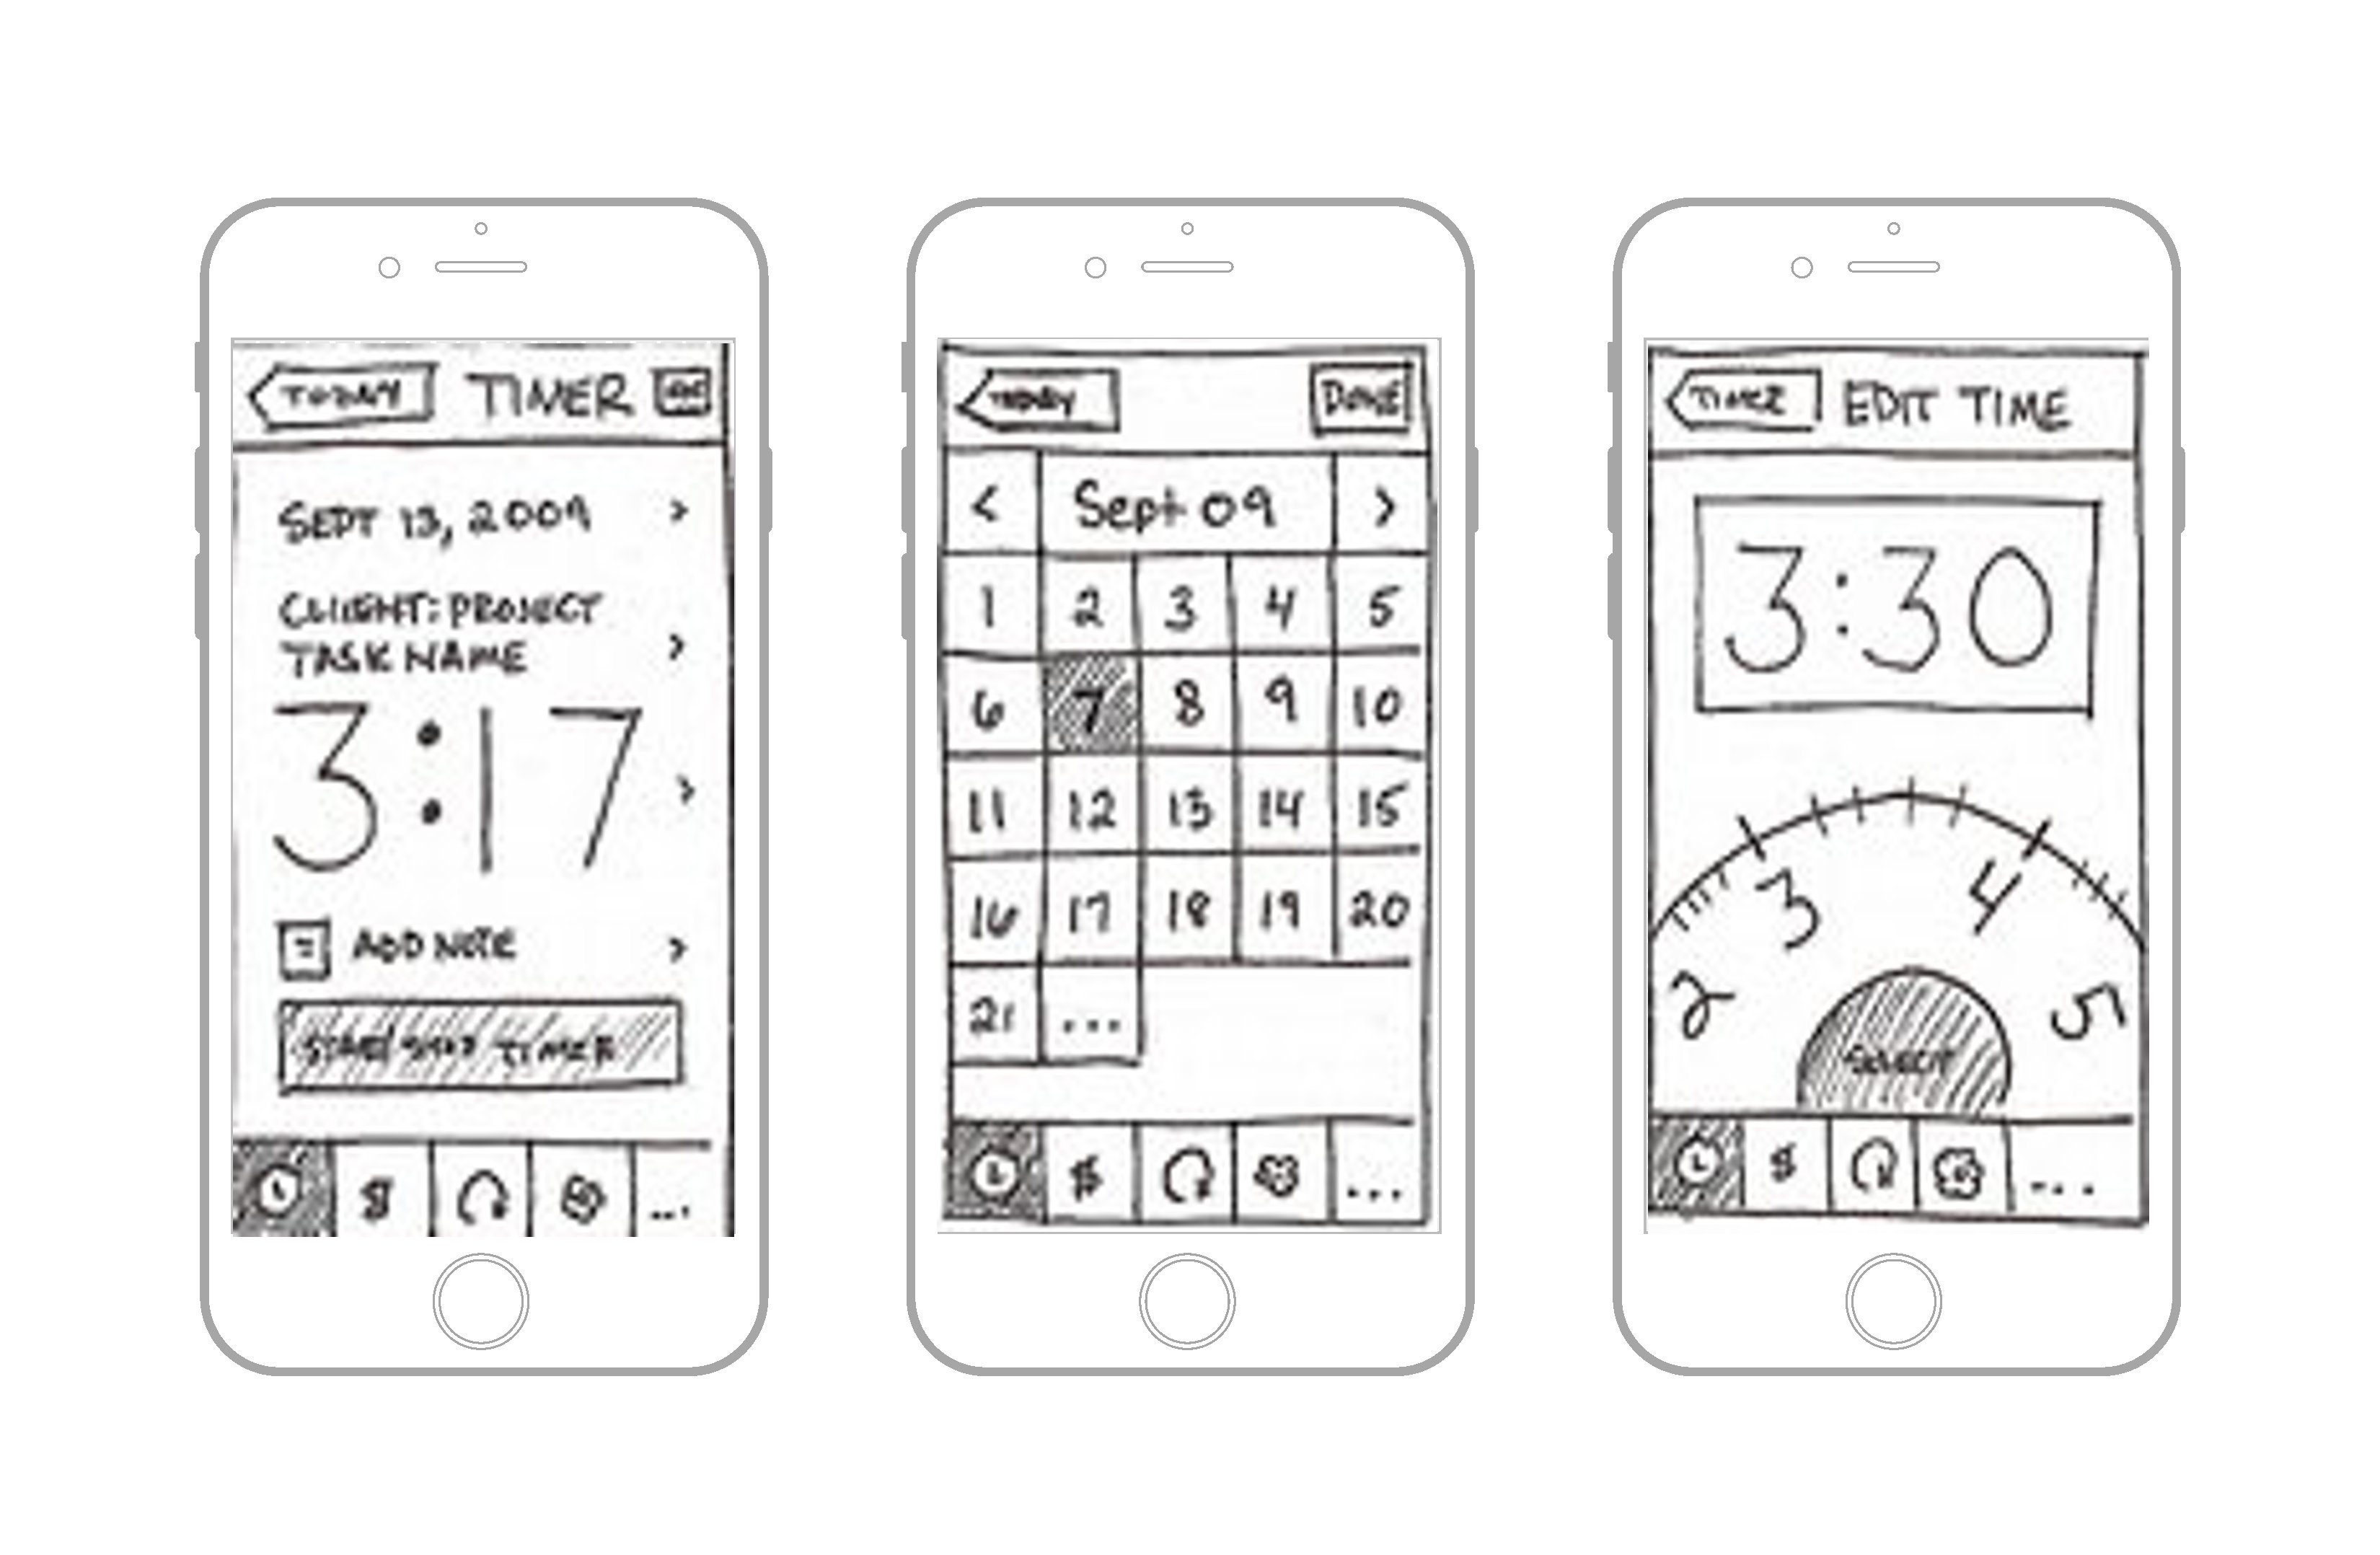 TODAY TIMER
SEPT 13, 2009 >
CLIENT: PROJECT
TASK NAME >
3:17 >
ADD NOTE >
START/STOP TIMER
$ ...
TODAY DONE
< Sept 09 >
1 2 3 4 5
6 7 8 9 10
11 12 13 14 15
16 17 18 19 20
21 ...
$ ...
TIMER EDIT TIME
3:30
2 3 4 5
SELECT
$ ...